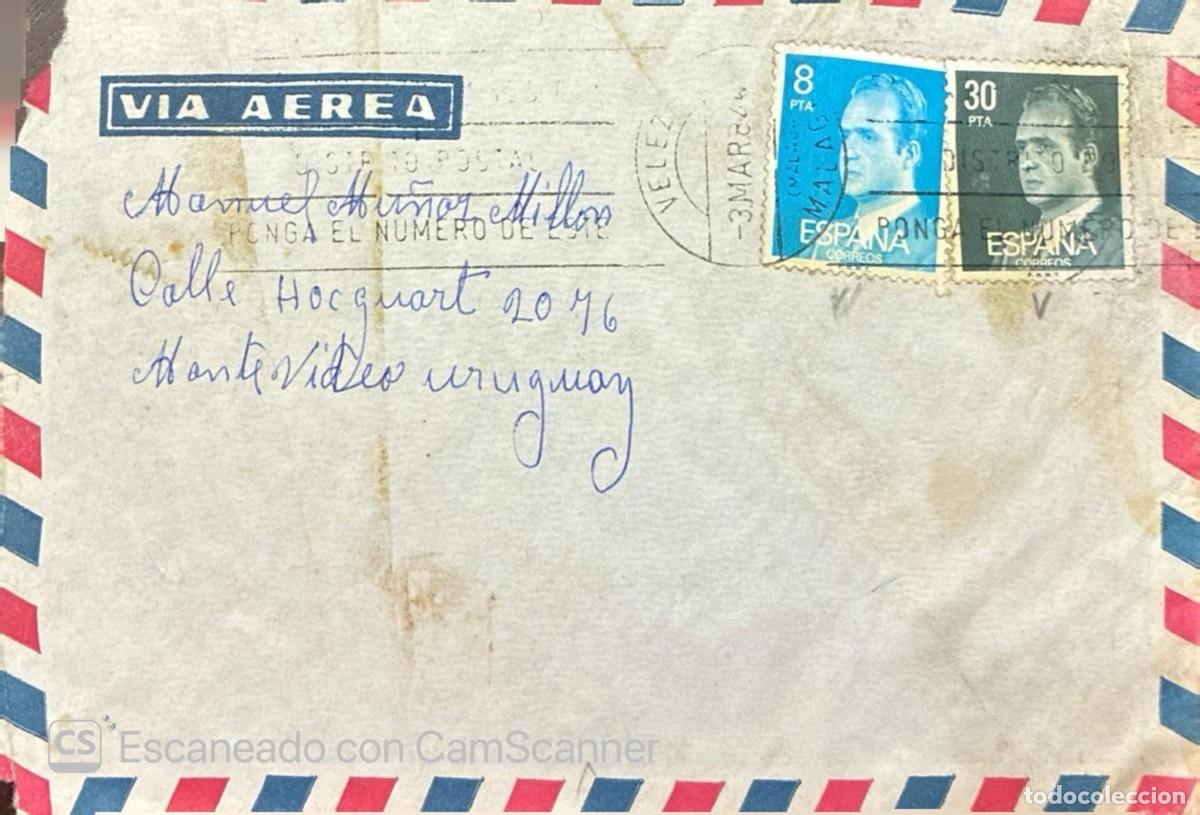 VIA AEREA
Manuel Muñoz Millon
Calle Hocquart 2076
Montevideo uruguay
DISTRITO POSTAL
PONGA EL NUMERO DE ESTE
VELEZ MALAGA
(MALAGA)
-3.MAR
8 PTA
ESPAÑA
CORREOS
30 PTA
ESPAÑA
CORREOS
F.N.M.T.
DISTRITO PO
PONGA EL NUMERO DE
CS Escaneado con CamScanner
todocoleccion